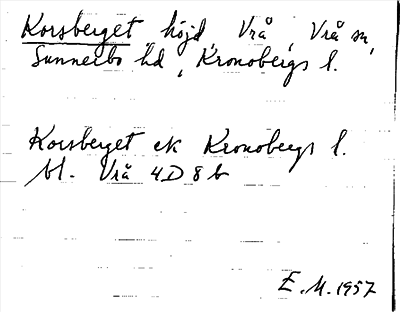 Korsberget, höjd, Vrå, Vrå sn,
Sunnerbo hd, Kronobergs l.
Korsberget ek Kronobergs l.
bl. Vrå 4D 8b
E.M. 1957